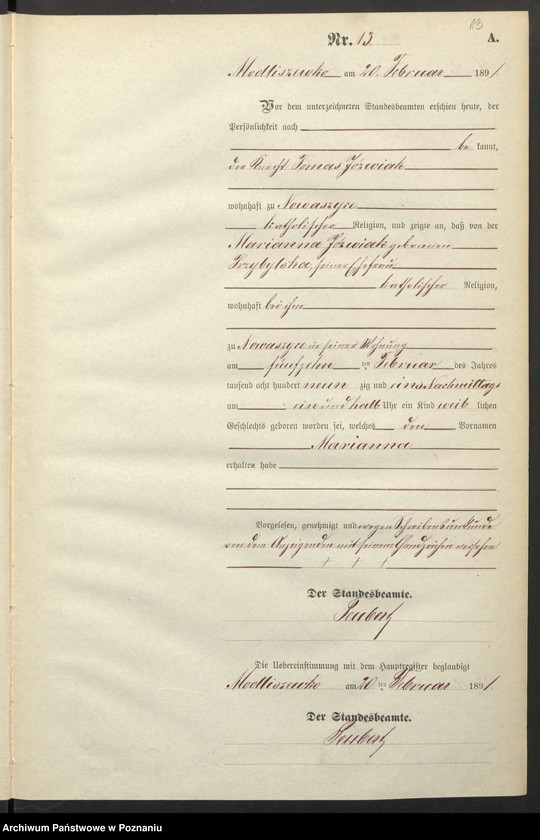 13
Nr. 13 A.
Modliszewko am 20. Februar 1891
Vor dem unterzeichneten Standesbeamten erschien heute, der
Persönlichkeit nach
be kannt,
der Knecht Tomas Józwiak
wohnhaft zu Nowaszyce
katholischer Religion, und zeigte an, daß von der
Marianna Józwiak geborenen
Przybylska, seiner Ehefrau
katholischer Religion,
wohnhaft bei ihm
zu Nowaszyce in seiner Wohnung
am fünfzehn ten Februar des Jahres
tausend acht hundert neun zig und eins Nachmittags
um ein und halb Uhr ein Kind weib lichen
Geschlechts geboren worden sei, welches den Vornamen
Marianna
erhalten habe
Vorgelesen, genehmigt und wegen Schreibensunkunde
von dem Anzeigenden mit seinem Handzeichen versehen
+ + +
Der Standesbeamte.
Die Uebereinstimmung mit dem Hauptregister beglaubigt
Modliszewko am 20 ten Februar 1891.
Der Standesbeamte.
Archiwum Państwowe w Poznaniu